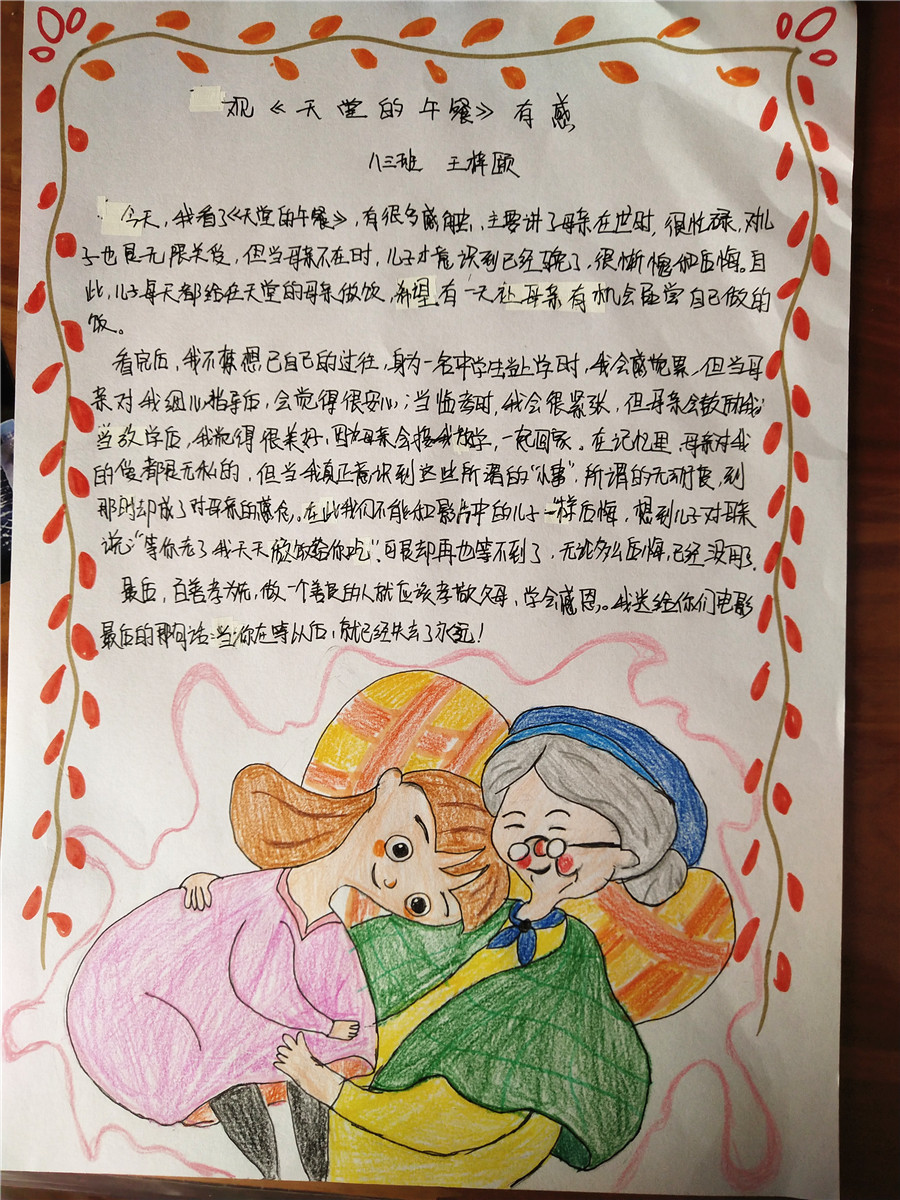 观《天堂的午餐》有感
八三班 王梓颐
今天，我看了《天堂的午餐》，有很多感触，主要讲了母亲在世时，很忙碌，对儿
子也是无限关爱，但当母亲不在时，儿子才意识到已经晚了，很惭愧和后悔。因
此，儿子每天都给在天堂的母亲做饭，希望有一天让母亲有机会品尝自己做的
饭。
看完后，我不禁想已自己的过往，身为一名中学生当上学时，我会感觉累，但当母
亲对我细心指导后，会觉得很安心；当临考时，我会很紧张，但母亲会鼓励我；
当放学后，我觉得很美好，因为母亲会接我放学，一起回家。在记忆里，母亲对我
的爱都是无私的，但当我真正意识到这些所谓的“小事”，所谓的无所谓，到
那时却成了对母亲的。在此我们不能和影片中的儿子一样后悔，想到儿子对母亲
说：“等你老了我天天做饭给你吃”，可是却再也等不到了，无论多么后悔，已经没用了。
最后，百善孝为先，做一个善良的人就应该孝敬父母，学会感恩。我送给你们电影
最后的那句话：当你在等以后，就已经失去了永远！